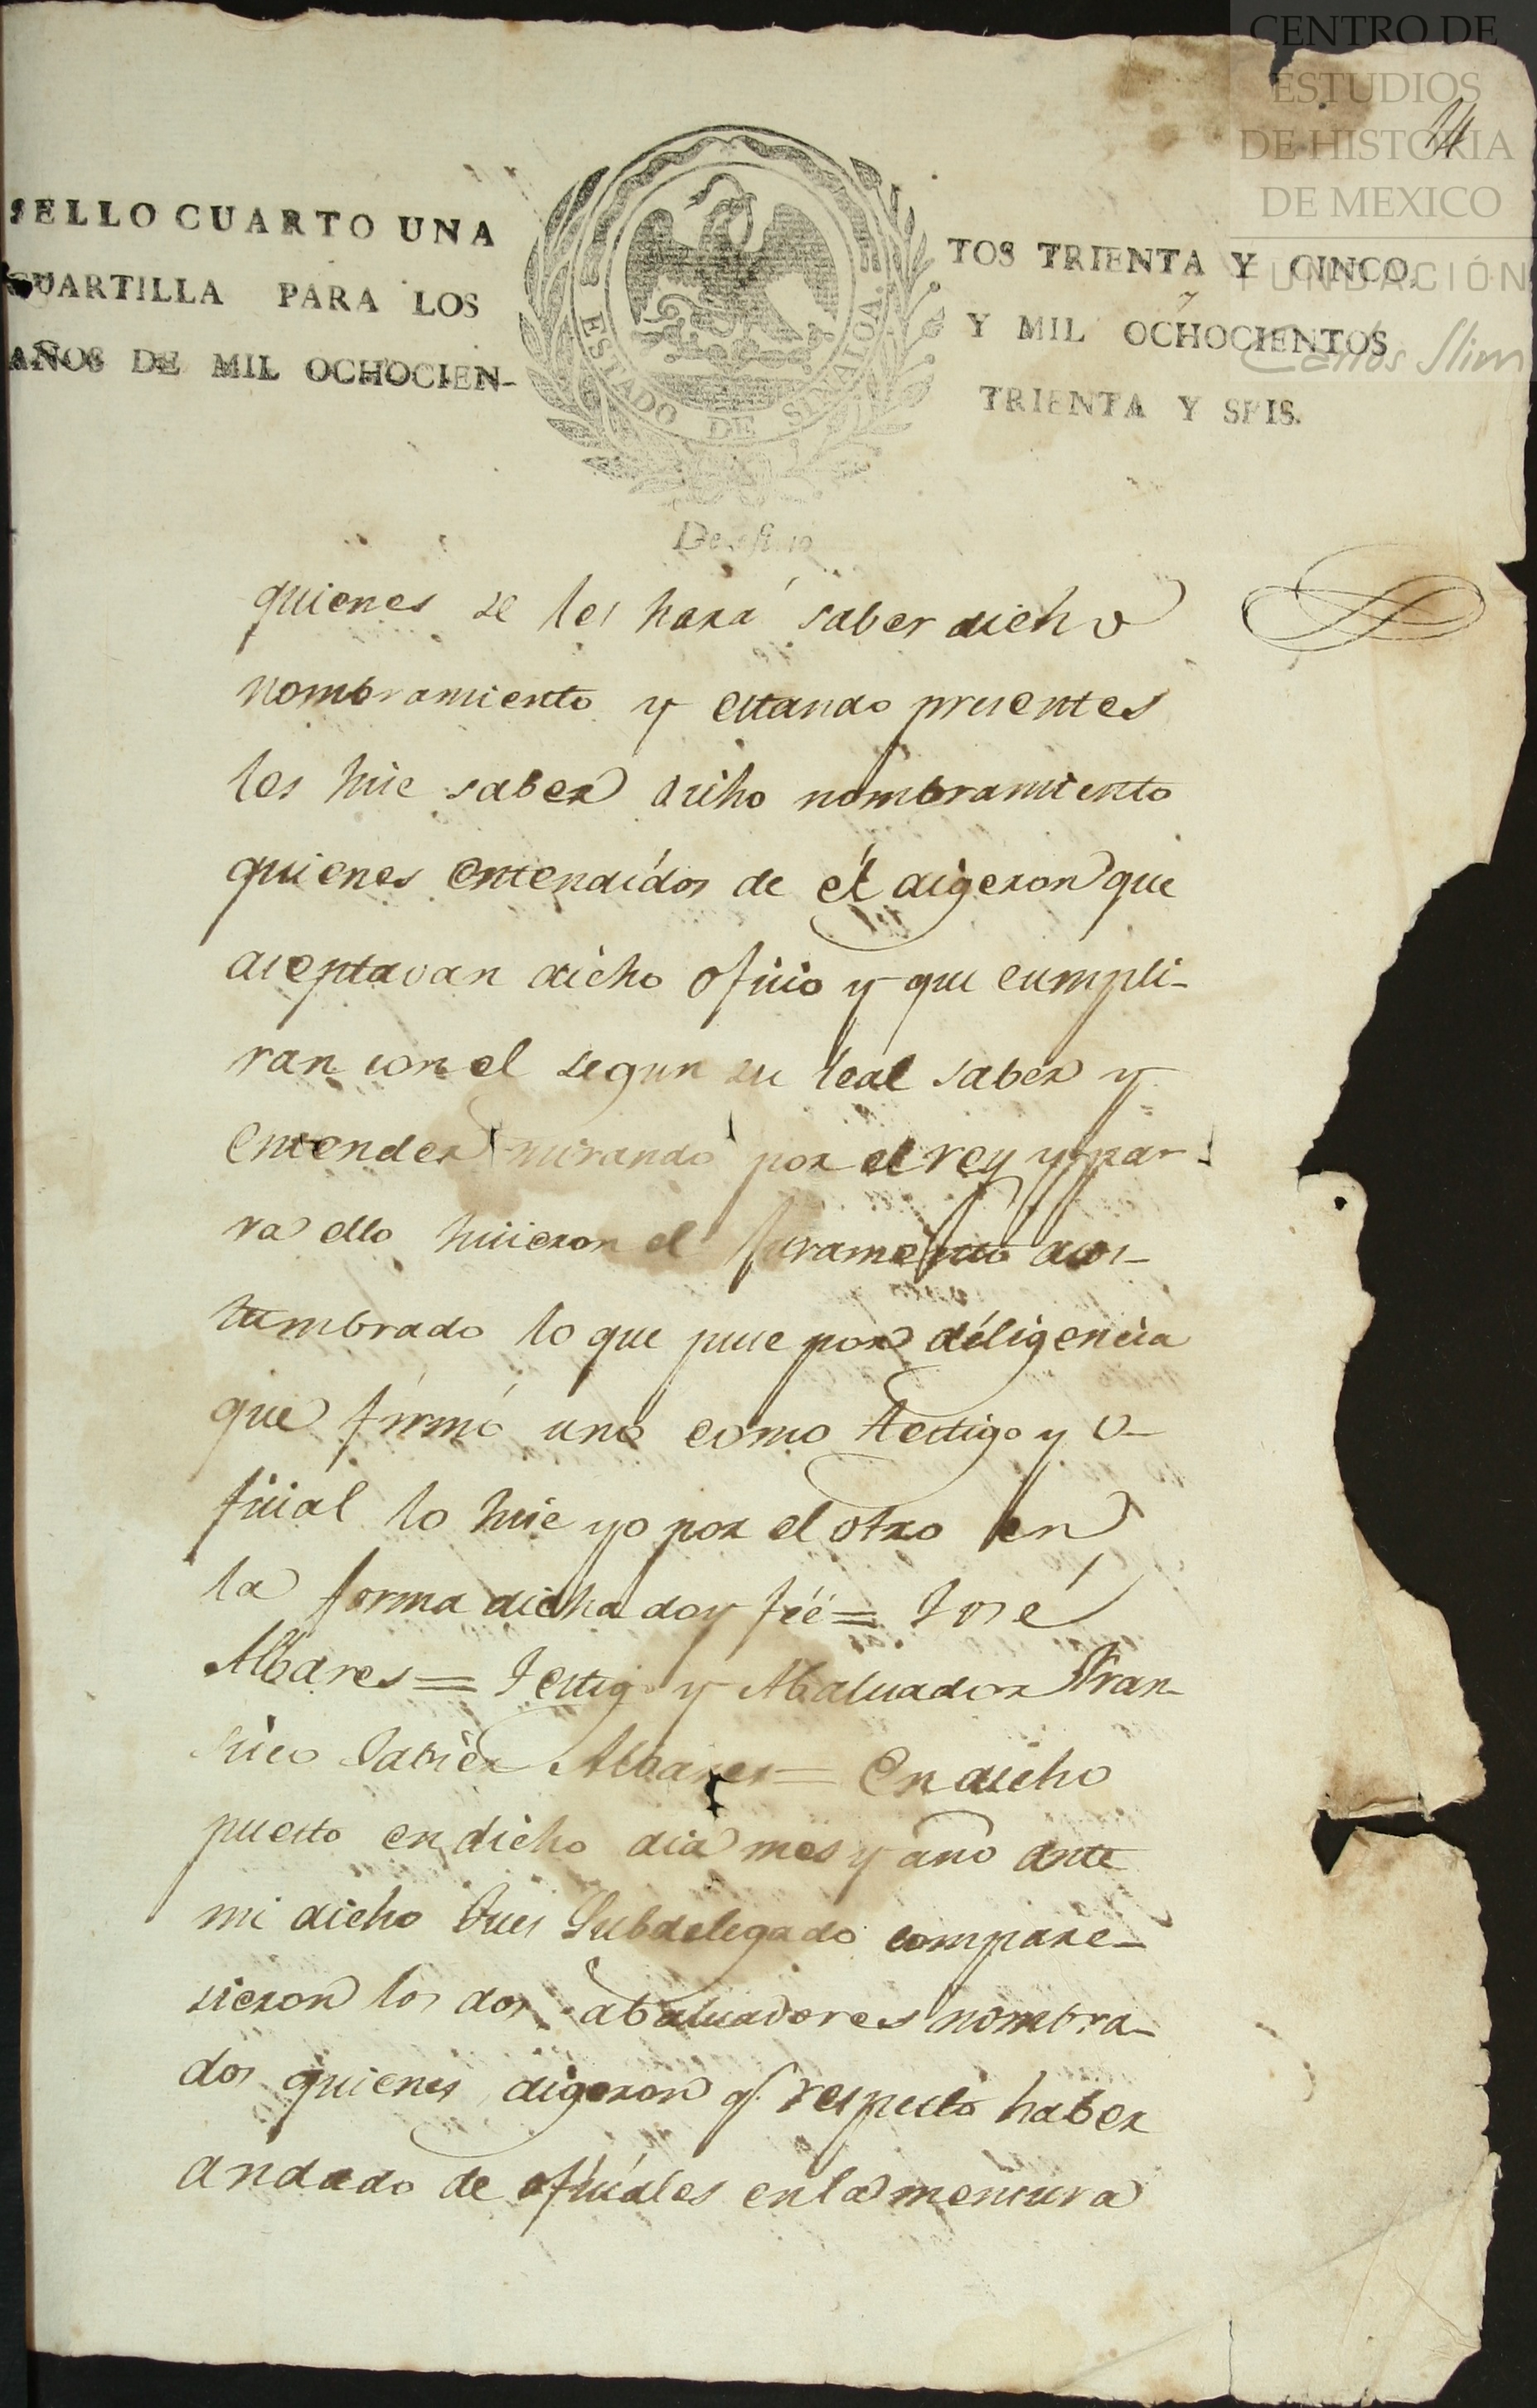 CENTRO DE
ESTUDIOS
DE HISTORIA
DE MEXICO
FUNDACIÓN
Carlos Slim
14
SELLO CUARTO UNA
CUARTILLA PARA LOS
AÑOS DE MIL OCHOCIEN-
ESTADO DE SINALOA.
TOS TRIENTA Y CINCO,
Y MIL OCHOCIENTOS
TRIENTA Y SEIS.
quienes se les hará saber dicho
nombramiento y estando presentes
les hice saber dicho nombramiento
quienes entendidos de él digeron que
aceptavan dicho oficio y que cumpli-
ran con el segun su leal saber y
entender mirando por el rey y par-
ra ello hicieron el juramento acos-
tumbrado lo que puse por diligencia
que firmó uno como testigo y o-
ficial lo hice yo por el otro en
la forma dicha doy feé = José
Albares = Testigo y Abaluador Fran-
sico Jabier Albares = En dicho
puesto en dicho dia mes y año ante
mi dicho Jues Subdelegado compare-
sieron los dos abaluadores nombra-
dos quienes digeron q.e respecto haber
andado de oficiales en la mencura